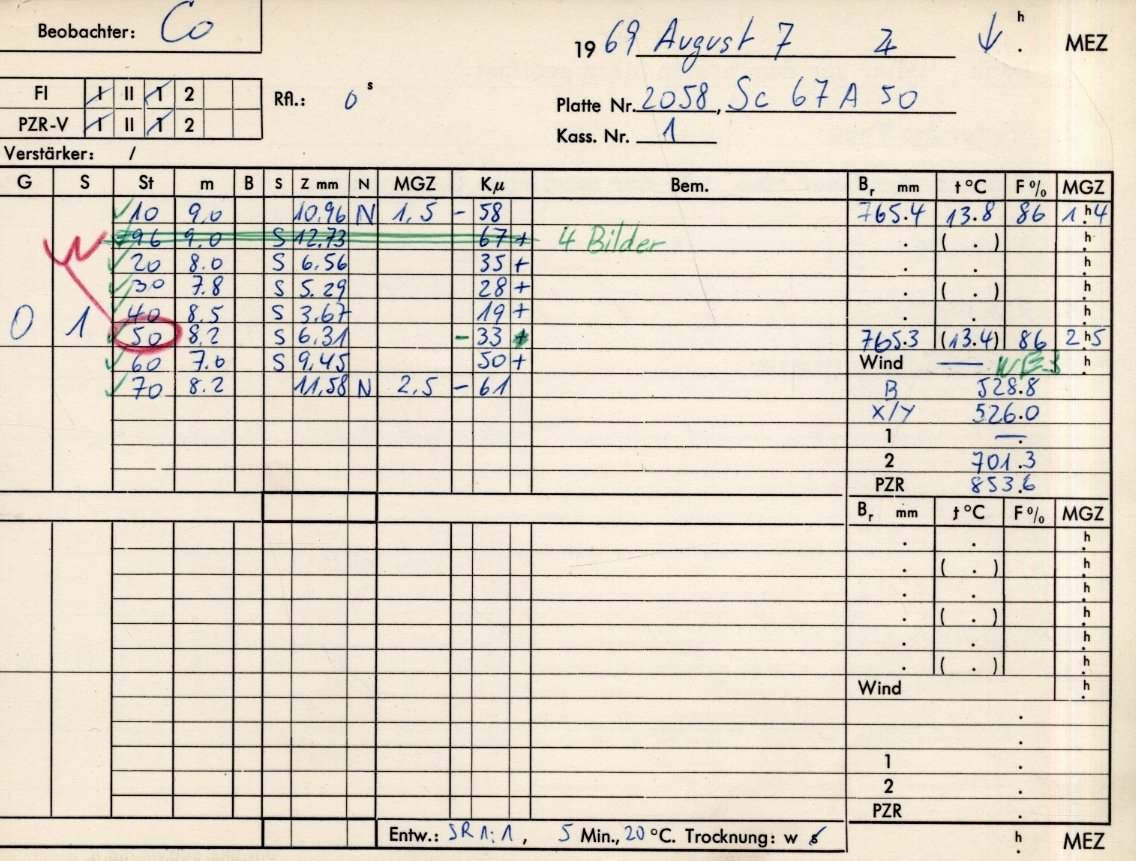 Beobachter: Co
19 69 August 7 h . MEZ
FI I II 1 2
RA.: 0 s
Platte Nr. 2058, Sc 67 A 50
PZR-V I II 1 2
Kass. Nr. 1
Verstärker: /
G S St m B S Z mm N MGZ Kμ Bem. Br mm t °C F % MGZ
10 9.0 10.96 N 1,5 - 58 765.4 13.8 86 1 h 4
96 9.0 S 12.73 67 + 4 Bilder . ( . ) h
20 8.0 S 6.56 35 + . . h
30 7.8 S 5.29 28 + . ( . ) h
40 8.5 S 3.67 19 + . . h
0 1 50 8.2 S 6.31 - 33 + 765.3 (13.4) 86 2 h 5
60 7.0 S 9.45 50 + Wind — h
70 8.2 11.58 N 2,5 - 61 B 528.8
X/Y 526.0
1 — .
2 701.3
PZR 853.6
Br mm t °C F % MGZ
. . h
. ( . ) h
. . h
. ( . ) h
. . h
. ( . ) h
Wind h
.
.
1 .
2 .
PZR .
Entw.: SR 1:1, 5 Min., 20 °C. Trocknung: w s h . MEZ